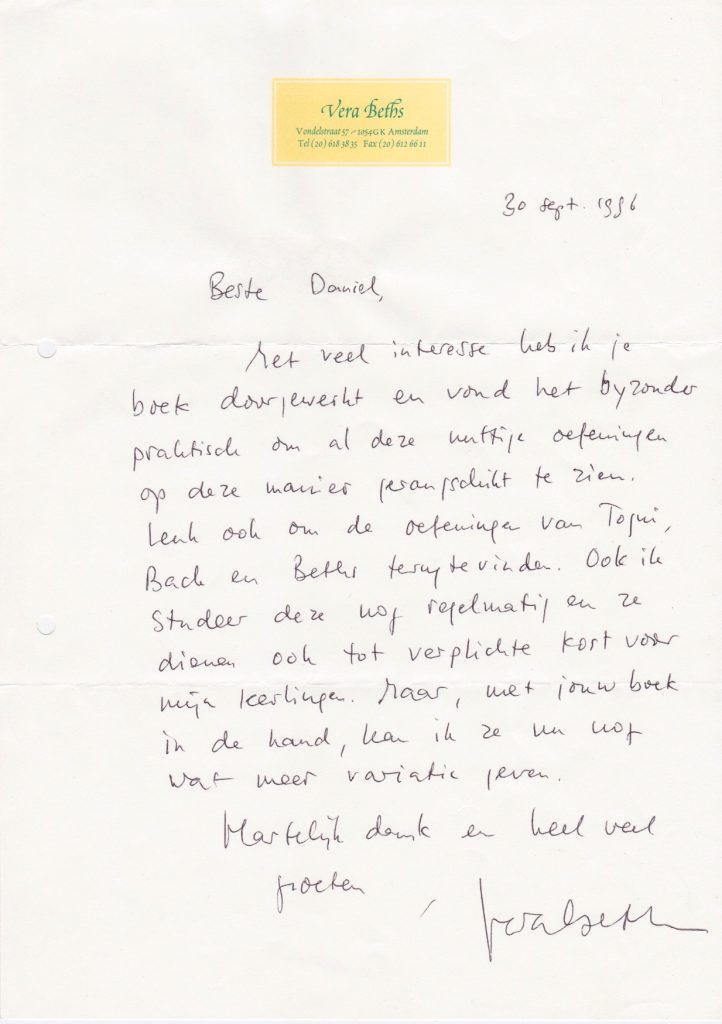 Vera Beths
Vondelstraat 57 – 1054GK Amsterdam
Tel (20) 618 38 35 Fax (20) 612 66 11
30 sept. 1996
Beste Daniel,
Met veel interesse heb ik je
boek doorgewerkt en vond het byzonder
praktisch om al deze nuttige oefeningen
op deze manier gerangschikt te zien.
Leuk ook om de oefeningen van Togni,
Bach en Beths terug te vinden. Ook ik
studeer deze nog regelmatig en ze
dienen ook tot verplichte kost voor
mijn leerlingen. Maar, met jouw boek
in de hand, kan ik ze nu nog
wat meer variatie geven.
Hartelijk dank en heel veel
groeten,
Vera Beths